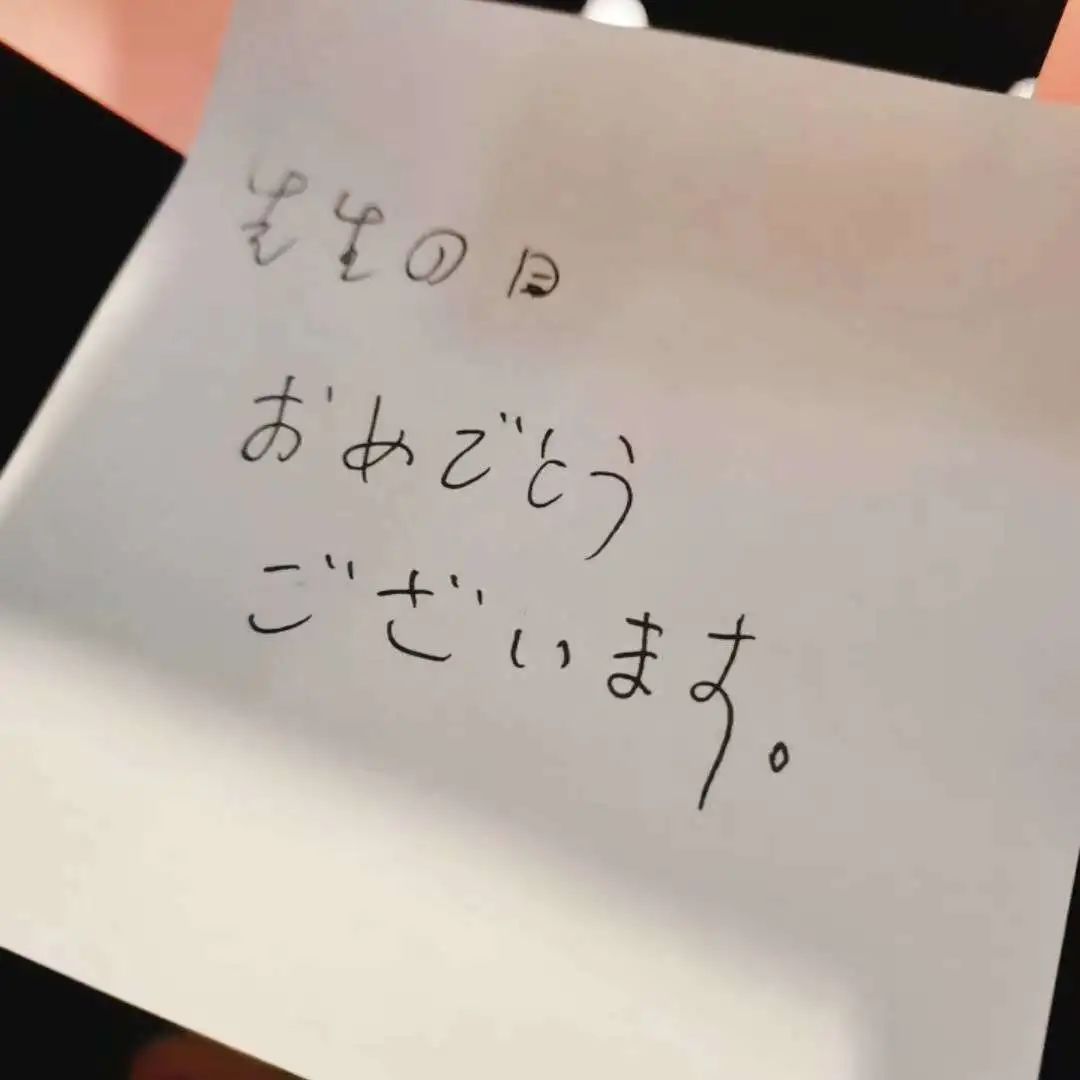 先生の日
おめでとう
ございます。